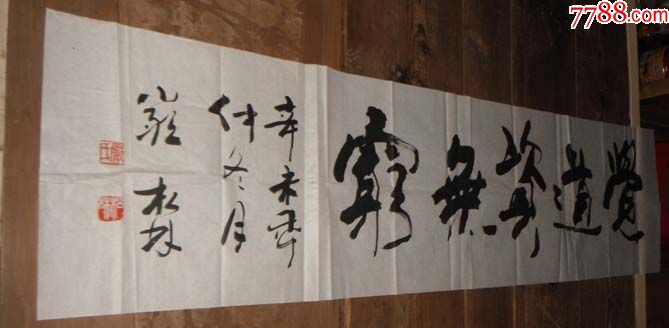 7788.com
覺道資無窮
辛未年
仲冬月
嚴